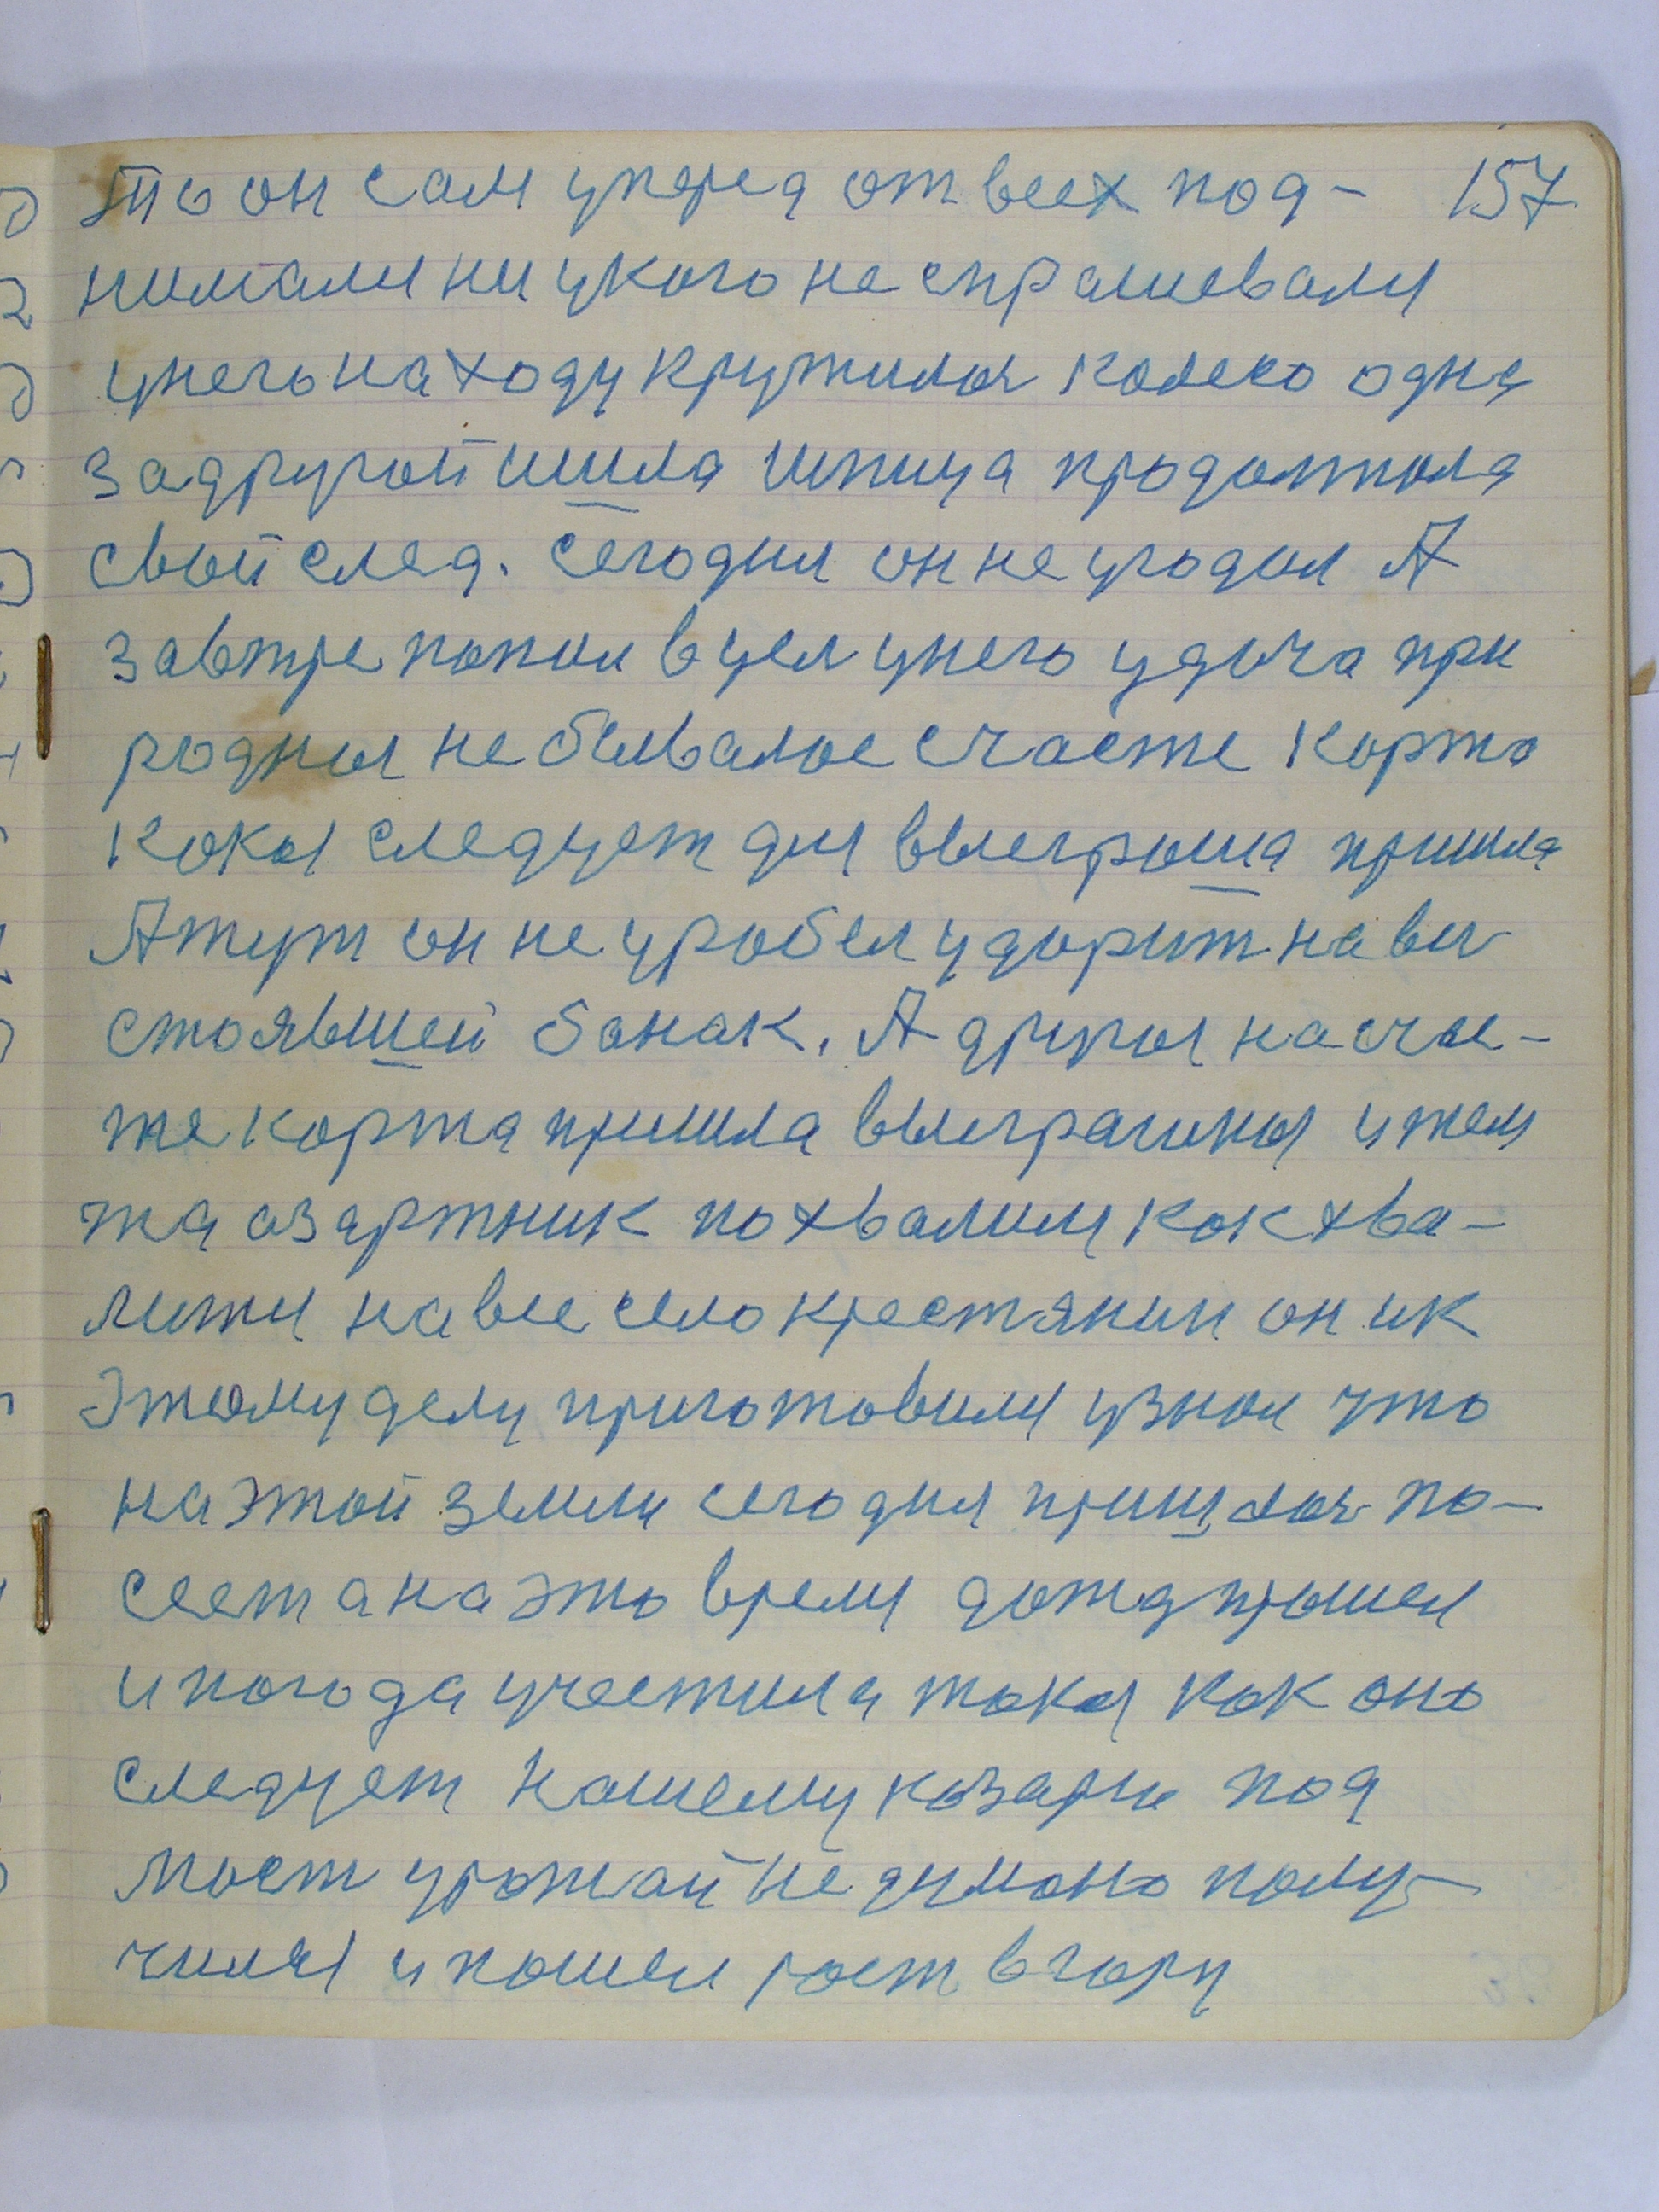 то он сам уперед от всех под- 157
нимали ни укого не спрашевали
унего на ходу кружилоя колесо одна
за другой шила шпица продолжола
свой след. Сегодня он не угодал А
завтре попал в цел унего удача при
родныя небывалое счасте корта
кокая следует для выегроша пришла
А тут он не уробел ударит на вы
стоявшей банак. А другоя насчас-
те корта пришла выеграшная и тем
жа азартник похвалили кок хва-
лити на все село крестянин он ик
этому делу приготовился узнал что
на этой земли сегодня пришлоя по-
сеет а на это время дождпрошел
и погода участила токая кок оно
следует нашему козарю под
мост урожай не думано полу-
чился и пошел рост в гору